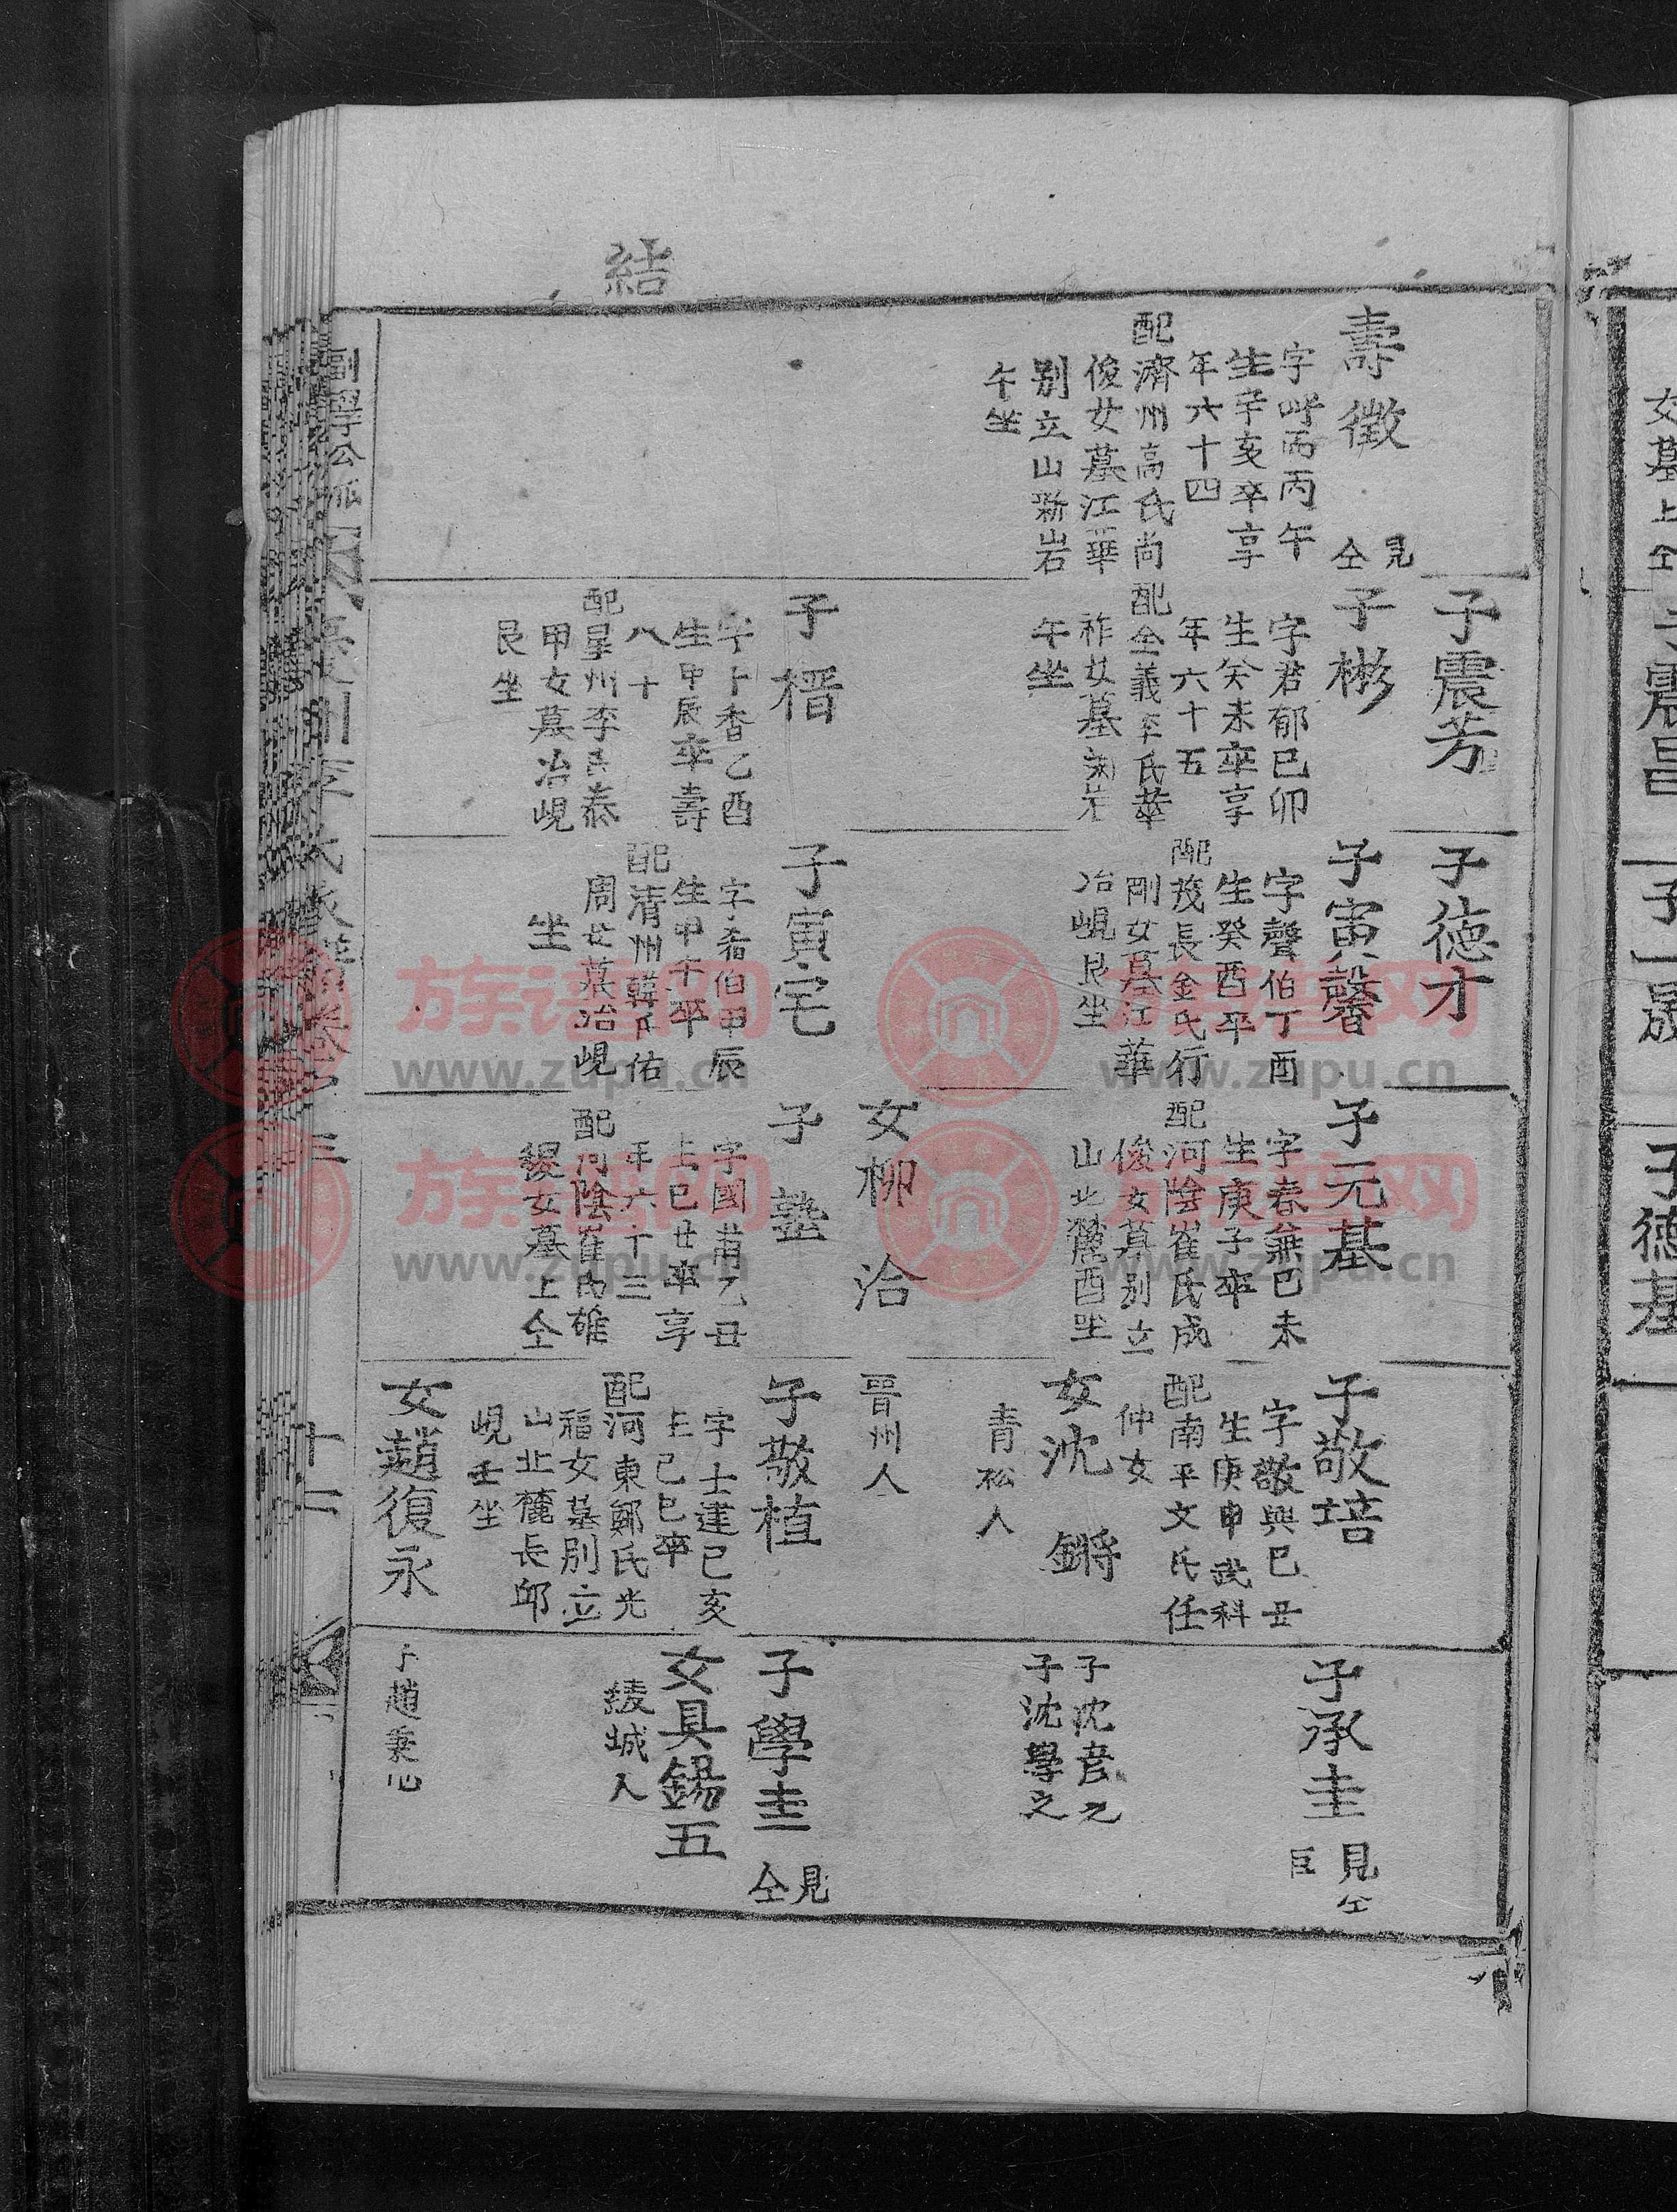 結
子震芳
子德才
壽徵
見仝
生辛亥卒享
年六十四
配濟州高氏尚
俊女墓江華
別立山新岩
午坐
子彬
字君郁己卯
生癸未卒享
年六十五
配全義李氏華
午坐
子寅馨
字聲伯丁酉
生癸酉卒
配茂長金氏行
剛女墓江華
冶峴艮坐
子元基
字春兼己未
生庚子卒
配河陰崔氏成
俊女墓別立
山北麓酉坐
子敬培
字敬興己丑
生庚申武科
配南平文氏任
仲女
子承圭
見仝
女沈鏘
青松人
子沈彦之
子沈學之
女柳洽
晉州人
子榗
字卜香乙酉
生甲辰卒壽
八十
配星州李氏泰
甲女墓冶峴
艮坐
子寅宅
字香伯甲辰
生甲午卒
配清州韓氏佑
周女墓冶峴
坐
子塾
字國甫乙丑
年六十三
配河陰崔氏碓
女墓上仝
子敬植
字士建己亥
生己巳卒
配河東鄭氏光
福女墓別立
山北麓長邱
峴壬坐
子學圭
見仝
女具錫五
綾城人
女趙復永
子趙秉
副
公派
李氏
三
十二
女墓上仝
子震昌
子晟
子德基
族谱网
www.zupu.cn
族谱网
www.zupu.cn
族谱网
www.zupu.cn
族谱网
www.zupu.cn